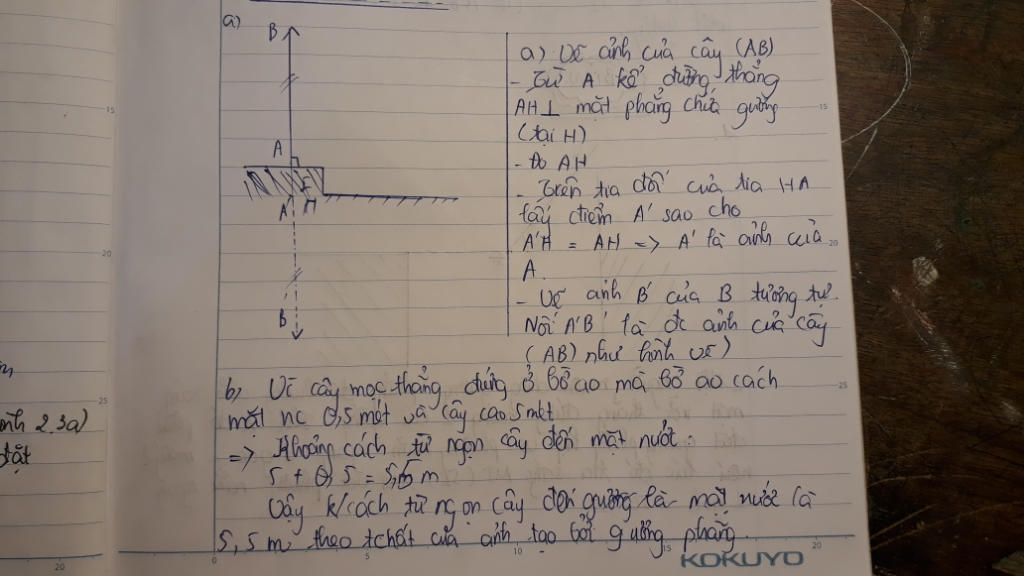 a)
B
A
I
A' H
B'
a) Vẽ ảnh của cây (AB)
- Từ A kẻ đường thẳng
AH⊥ mặt phẳng chứa gương
(tại H)
- Đo AH
- Trên tia đối của tia HA
lấy điểm A' sao cho
A'H = AH => A' là ảnh của
A.
- Vẽ ảnh B' của B tương tự.
Nối A'B' là đc ảnh của cây
(AB) như hình vẽ)
b, Vì cây mọc thẳng đứng ở bờ ao mà bờ ao cách
mặt nc 0,5 mét và cây cao 5 mét
=> Khoảng cách từ ngọn cây đến mặt nước:
5 + 0,5 = 5,5 m
Vậy k/cách từ ngọn cây đến gương là mặt nước là
5,5 m theo tchất của ảnh tạo bởi gương phẳng.
KOKUYO
2.3a)
đặt
15
20
25
20
0
5
10
15
20
15
20
25